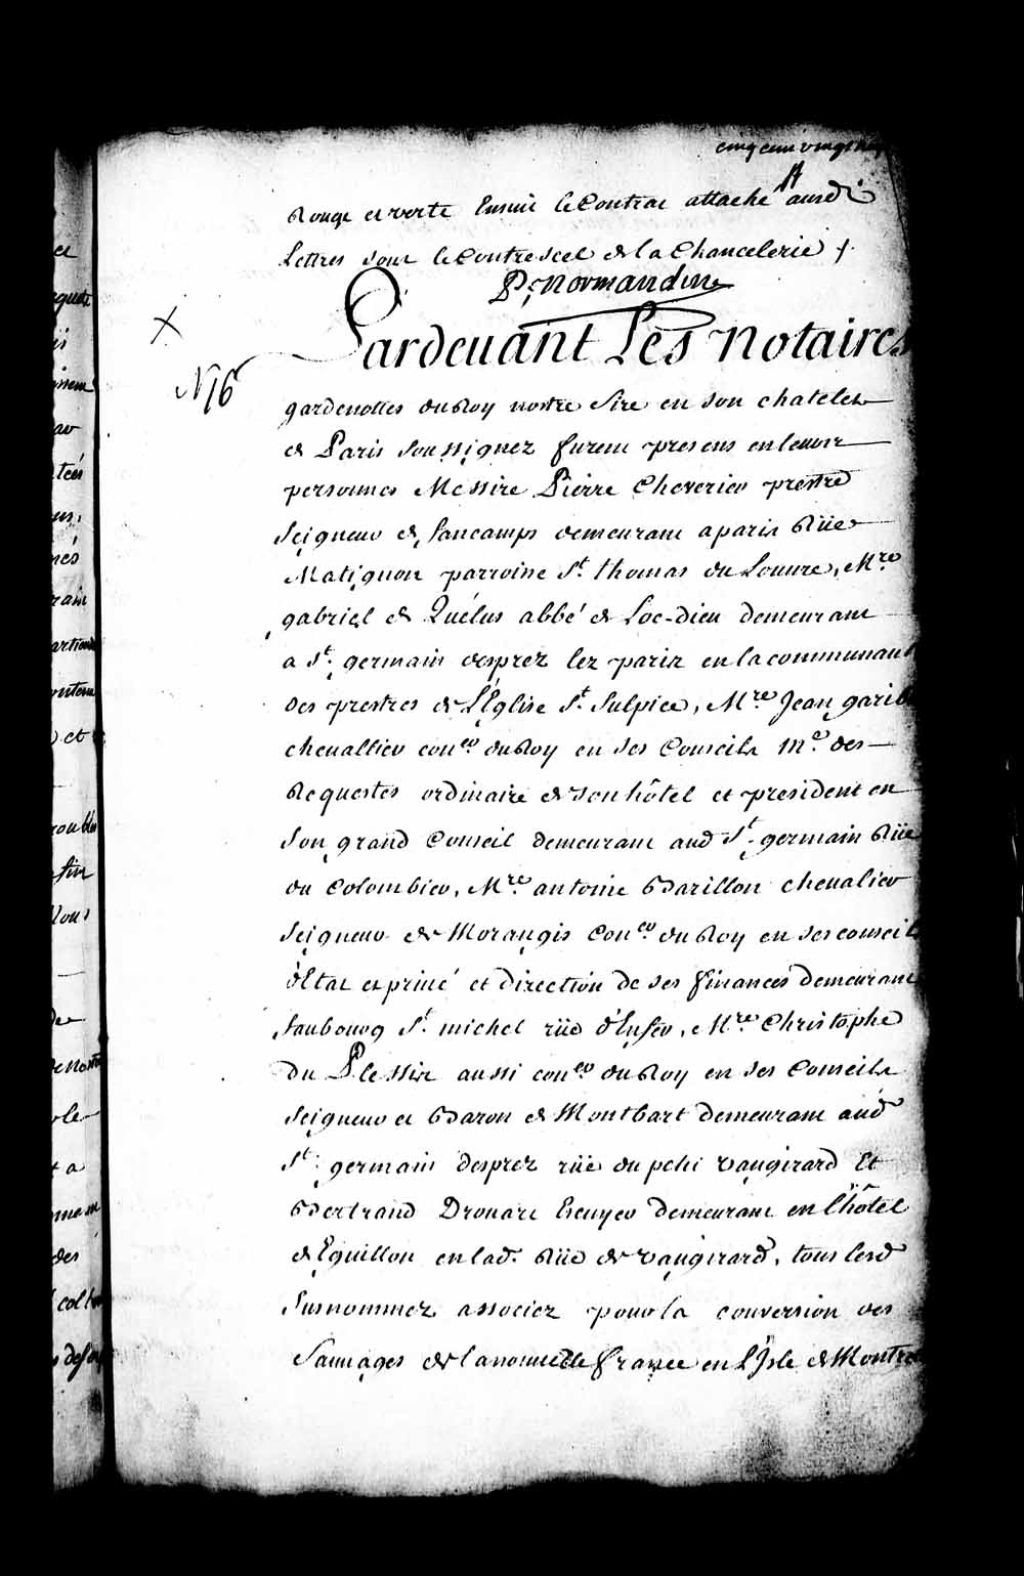 cinq cent vingt
Rouge et verte Ensuit le Contrat attaché ausd.
Lettres sous le Contrescel de la Chancelerie /.
P. Normandin
Pardeuant Les notaires
N 16
gardenottes du Roy nostre Sire en son chatelet
de Paris soussignez furent presens en leurs
personnes Messire Pierre Cheverier prestre
Seigneur de fancamps demeurant a paris Rüe
Matignon parroisse St. thomas du Louure, Mre.
gabriel de Quélus abbé de Loc-dieu demeurant
a St. germain desprez lez paris en la communau
des prestres de L'Eglise St. Sulpice, Mre. Jean garib
cheuallier coner. du Roy en ses Conseils Me. des
Requestes ordinaire de son hôtel et president en
Son grand Conseil demeurant aud St. germain Rüe
du Colombier, Mre. antoine Barillon cheualier
Seigneur de Morangis Coner. du Roy en ses conseils
d'Etat et priué et direction de ses finances demeurant
faubourg St. michel rüe d'Enfer, Mre. Christophe
du Plessis aussi coner. du Roy en ses Conseils
Seigneur et Baron de Montbart demeurant aud
St. germain desprez rüe du petit vaugirard Et
Bertrand Drouart Escuyer demeurant en l'hôtel
d'Eguillon en lad. Rüe de vaugirard, tous lesd
Susnommez associez pour la conversion des
Sauuages de la nouuelle france en L'Isle de Montre